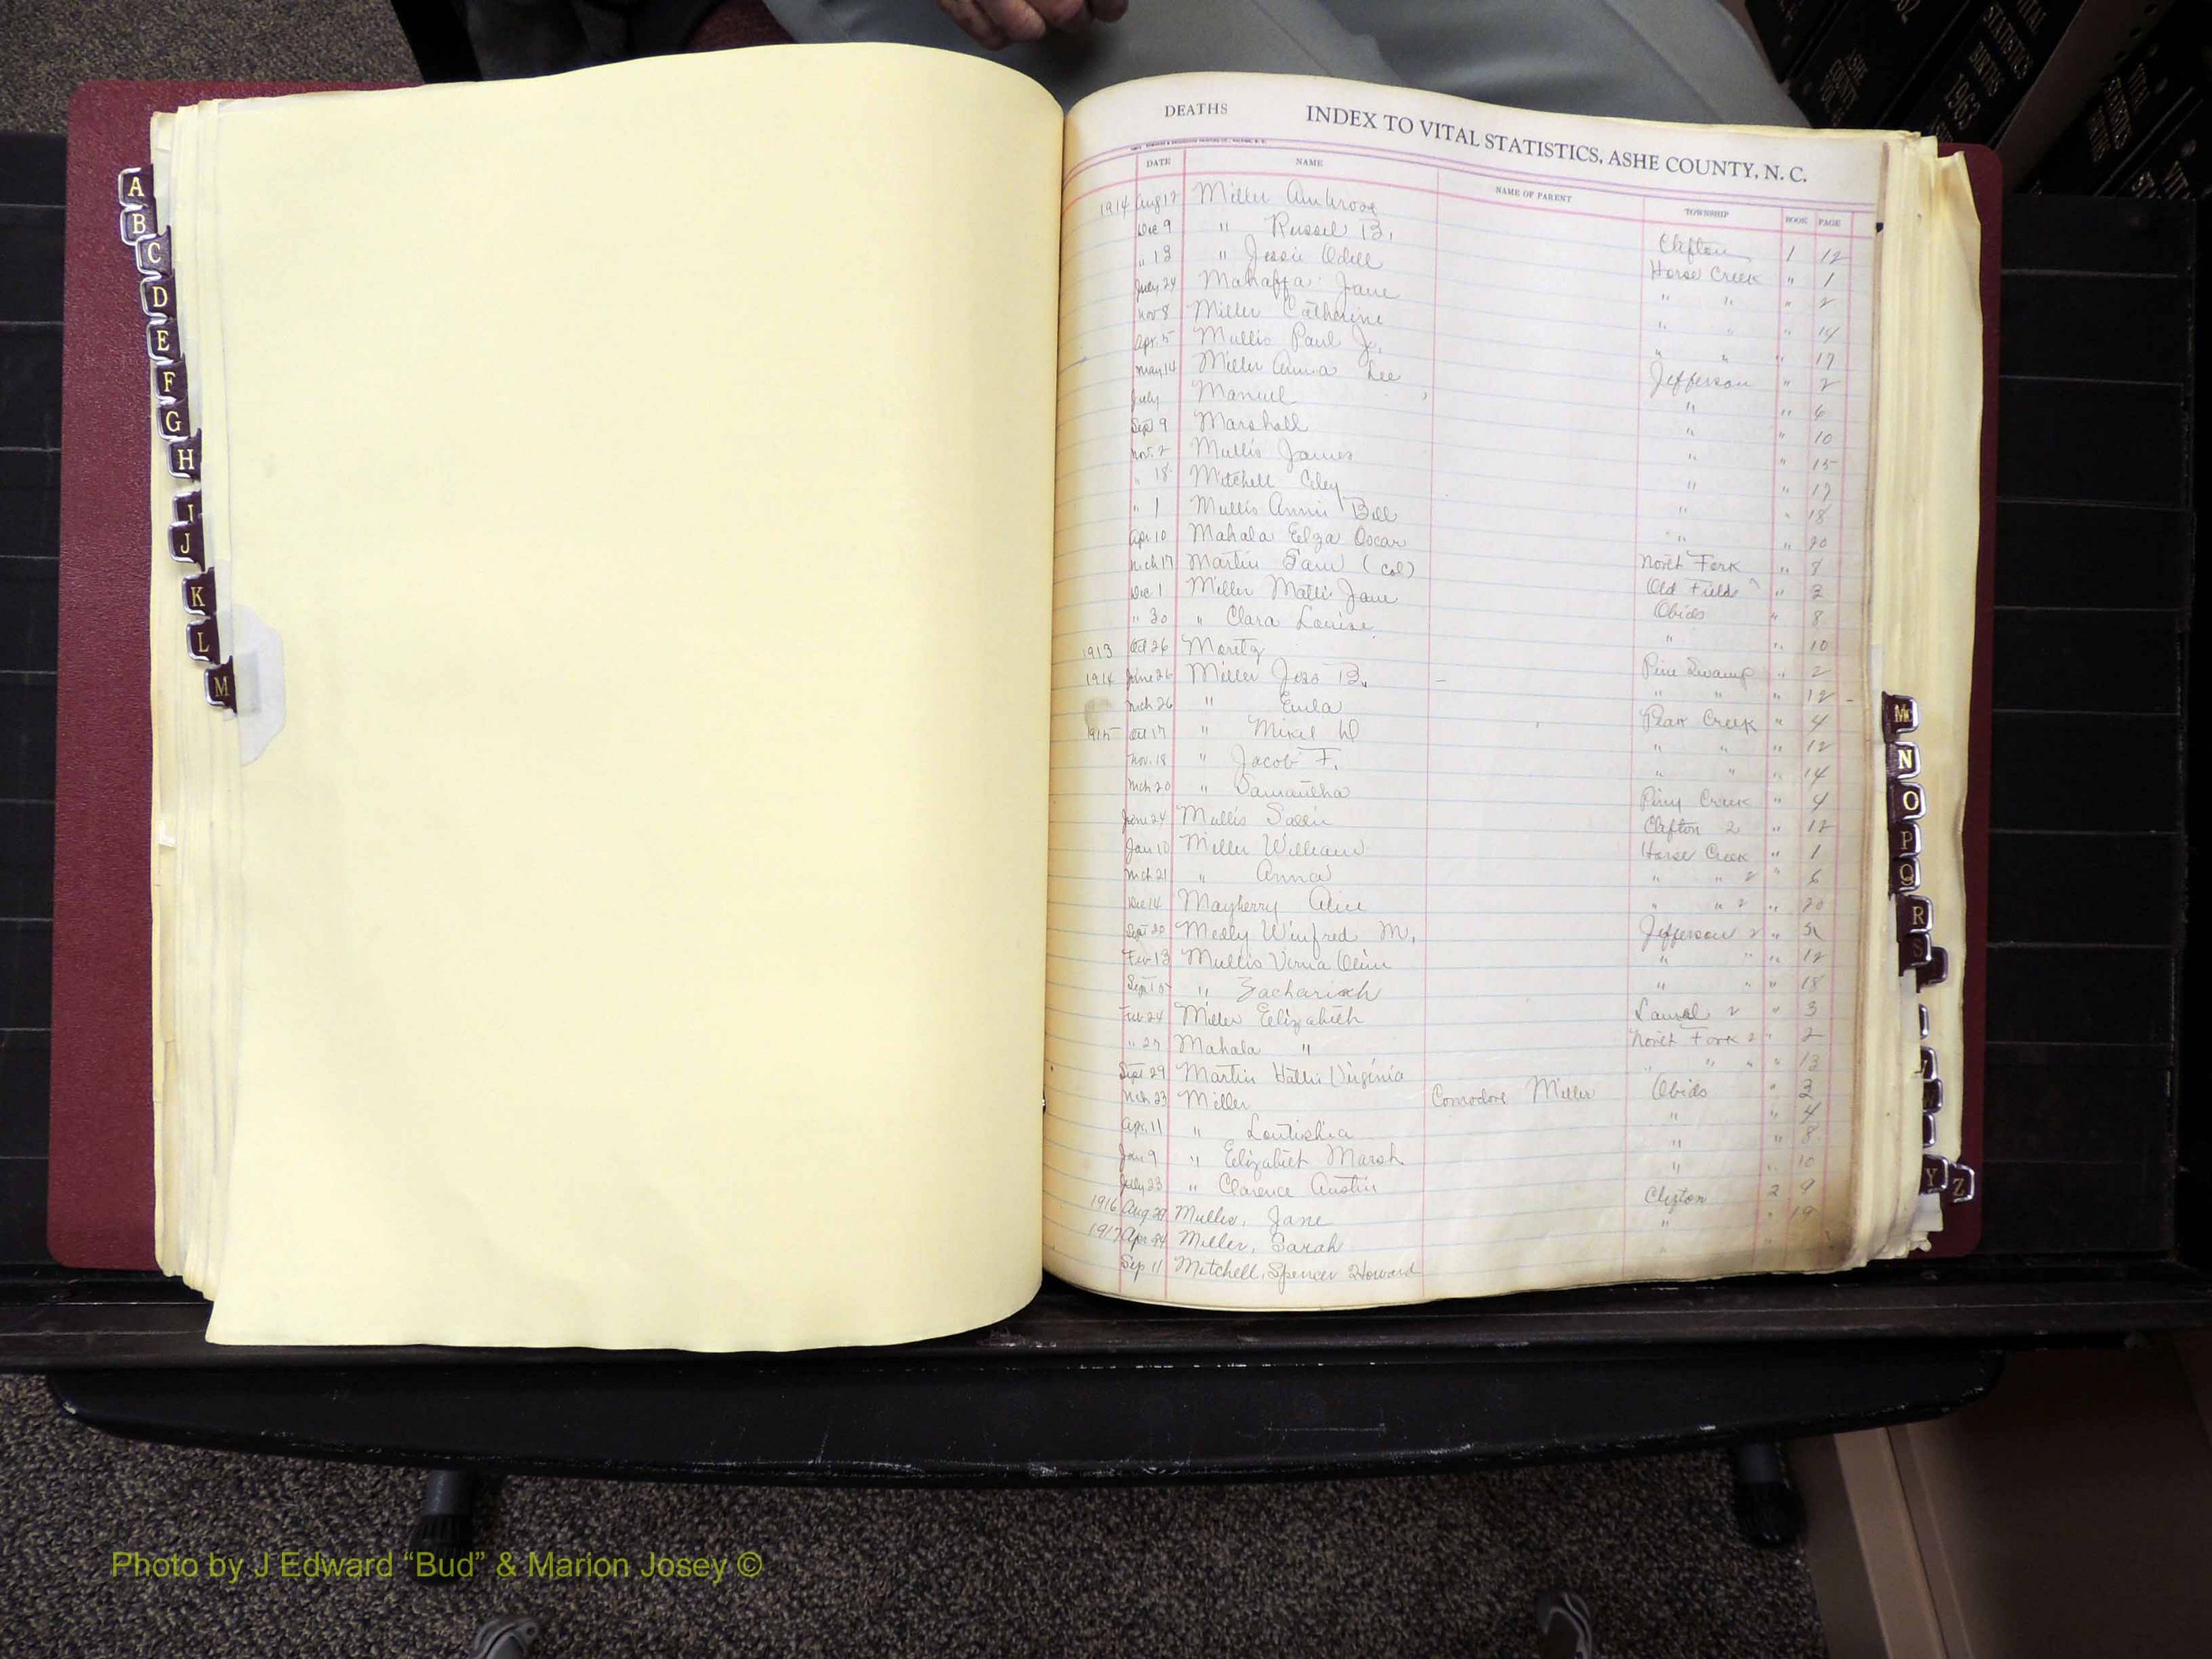 A
B
C
D
E
F
G
H
I
J
K
L
M
DEATHS INDEX TO VITAL STATISTICS, ASHE COUNTY, N. C.
DATE NAME NAME OF PARENT TOWNSHIP BOOK PAGE
1914 Aug 12 Miller Ambrose Clifton 1 12
Dec 9 " Russel B. Horse Creek " 1
" 13 " Jessie Odell " " " 2
July 24 Mahaffa Jane " " " 14
Nov 8 Miller Catherine " " " 17
Apr. 5 Mullis Paul Jr. Jefferson " 2
May 14 Miller Anna Lee " " 6
July Manuel " " 10
Sept 9 Marshall " " 15
Nov. 2 Mullis James " " 17
" 18 Mitchell Coley " " 18
" 1 Mullis Annie Bell " " 20
Apr 10 Mahala Elza Oscar North Fork " 8
Mch 17 Martin (Col) Old Fields " 2
Dec 1 Miller Mattie Jane Obids " 8
" 30 " Clara Louise " " 10
1913 Oct 26 Moretz Pine Swamp " 2
1914 June 26 Miller Jess B. " " " 12
Mch 26 " Eula Peak Creek " 4
1915 Oct 17 " Mikel W " " " 12
Nov. 18 " Jacob F. " " " 14
Mch 20 " Samantha Piney Creek " 4
June 24 Mullis Sallie Clifton 2 " 12
Jan 10 Miller William Horse Creek " 1
Mch 21 " Anna " " 2 " 6
Dec 14 Mayberry Alice " " 2 " 20
Sept 20 Mealy Winfred M. Jefferson 2 "
Feb 13 Mullis Verna Olin " " " 12
Sept 15 " Zachariah " " " 18
Feb 24 Miller Elizabeth Laurel 2 " 3
" 27 Mahala " North Fork 2 " 2
Sept 29 Martin Hallie Virginia " " " 13
Mch 23 Miller Comodore Miller Obids " 3
Apr. 11 " Loutishia " " 4
Jan 9 " Elizabeth Marsh " " 8
July 23 " Clarence Austin " " 10
1916 Aug 29 Mullis, Jane Clifton 2 9
1917 Apr 24 Miller, Sarah " " 19
Sep 11 Mitchell, Spencer Howard
Mc
N
O
P
Q
R
S
Y
Z
Photo by J Edward “Bud” & Marion Josey ©